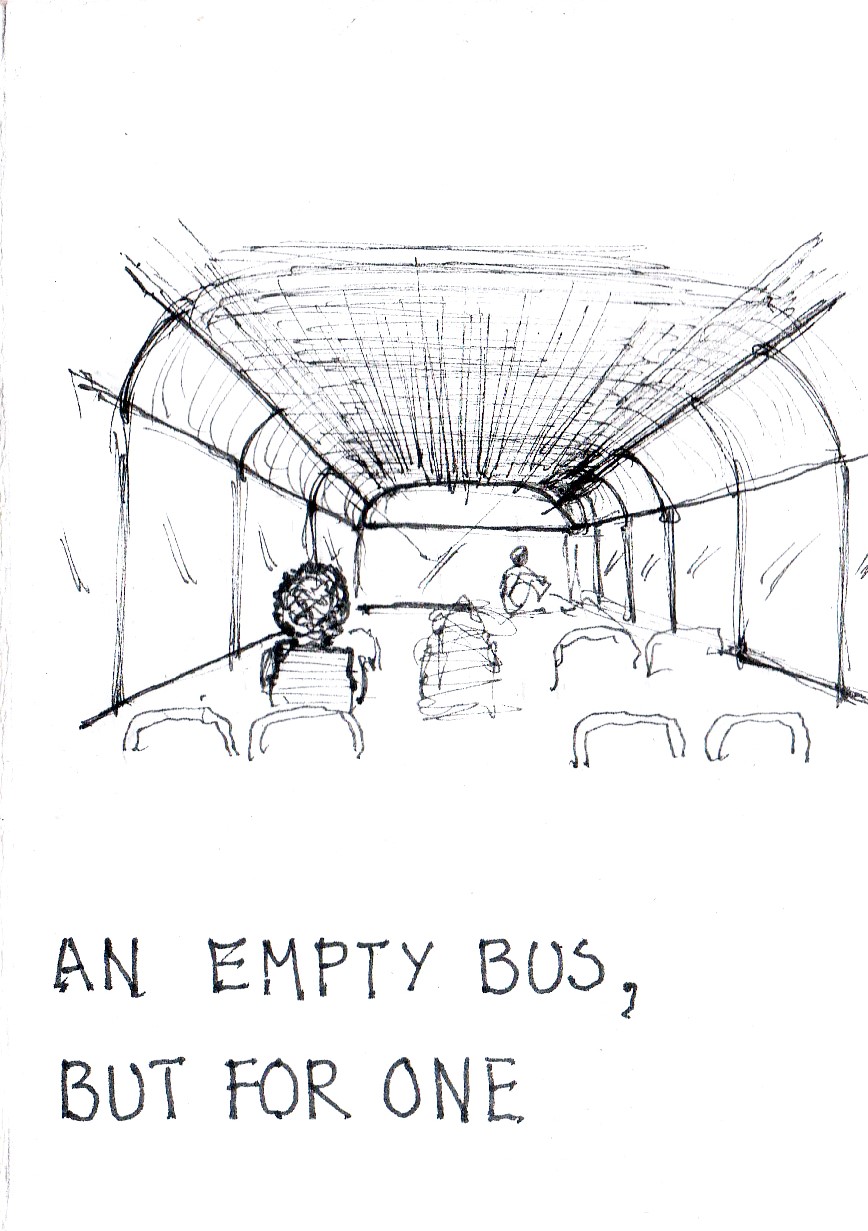 AN EMPTY BUS,
BUT FOR ONE